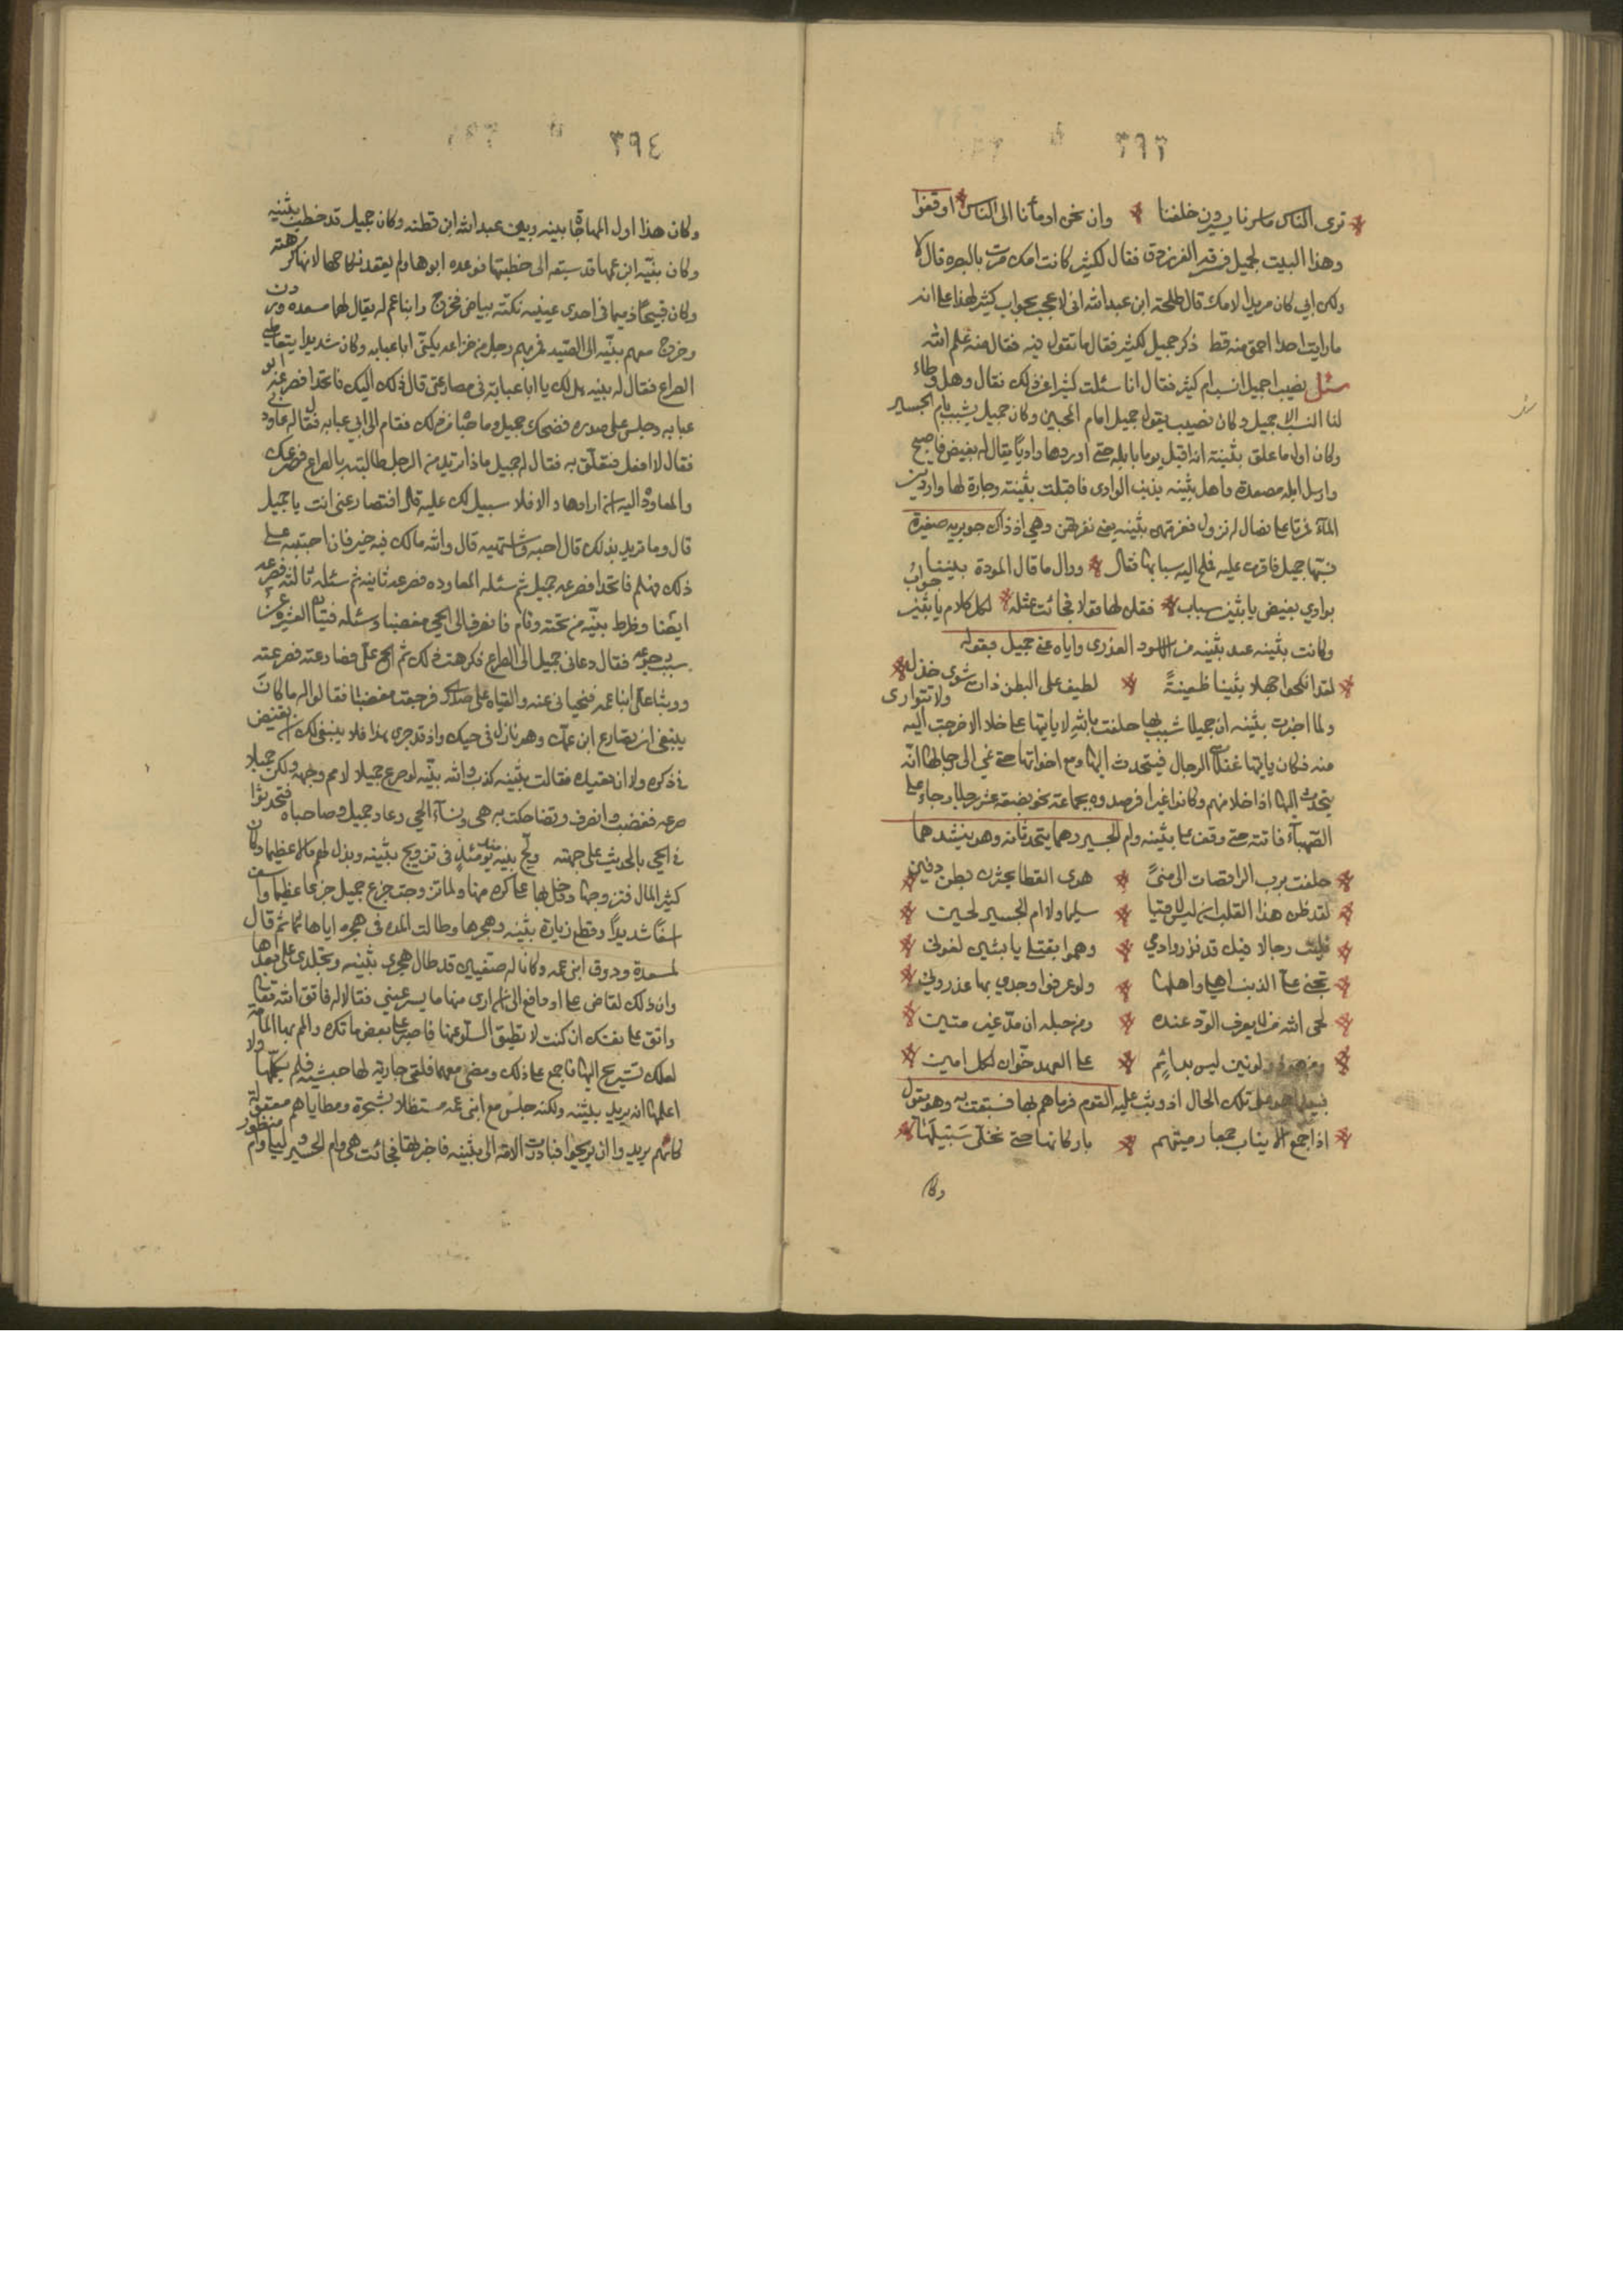 ٣٩٣
ترى الناس ما سرنا يسيرون خلفنا وان نحن اومأنا الى الناس اوقفوا
وهذا البيت لجميل فسرقه الفرزدق فقال لكثير كانت امك مرت بالبصره قال لا
ولكن ابي كان مريدا لامك قال طلحة ابن عبدالله اني لاعجب بجواب كثير لهذا على انه
ما رايت احدا احمق منه قط ذكر جميل لكثير فقال ما تقول فيه فقال منه علم الله
سئل نصيب اجميل انسب ام كثير فقال انا سئلت كثيرا عن ذلك فقال وهل وطاء
لنا النسب الا جميل وكان نصيب يقول جميل امام المحبين وكان جميل يشبب بام الجسير
وكان اول ما علق بثينة انه اقبل يوما بابله حتى اوردها واديا يقال له بغيض فاضجع
وارسل ابله مصعدة واهل بثينه بذنب الوادي فاقبلت بثينته وجارة لها واردين
الماء فمرتا على فصال له بزول فنفرتهن بثينه يعني نفرتهن وهي اذ ذاك جويريه صغيرة
فسبها جميل فافترت عليه فملح اليه سبابها فقال واول ما قال المودة بيننا
بوادي بغيض يا بثين سباب فقلن لها قولا فجائت بمثله لكل كلام يا بثين جواب
وكانت بثينه عند نبيه من الاسود العذري واياه عنى جميل بقوله
لقد انكحوا جهلا بثينا ظعينةً لطيف على البطن ذات شوى خذل
ولما اخبرت بثينه ان جميلا شبب بها حلفت بالله لا ياتيها على خلاء الا خرجت اليه ولا تتوارى
منه فكان ياتيها غفلات الرجال فيتحدث اليها ومع اخواتها حتى نمي الى رجالها انه
يتحدث اليها اذا خلا منهم وكانوا غيرا فرصدوه بجماعة نحو بضعة عشر رجلا وجاء على
الصهباء فاتته حتى وقف على بثينه وام الجسير وهما يتحدثانه وهو ينشدهما
حلفت برب الراقصات الى منىً هوى القطا يجتزن بطن دفين
لقد ظن هذا القلب ان ليس لاقيا سليما ولا ام الجسير لحين
فليت رجالا فيك قد نذروا دمي وهموا بقتلي يا بثين لقوني
لحى الله من لا يعرف الود عنده ومن حبله ان مد غير متين
ومن هو ذو لونين ليس بدائم على العهد خوان لكل امين
فبينما هو على تلك الحال اذ وثب عليه القوم فرماهم بها فسبقت به وهو يقول
اذا جمع الاثنان جمعا رميتهم باركانها حتى تخلى سبيلها
وكان
٣٩٤
وكان هذا اول المهاجاة بينه وبين عبدالله ابن قطنه وكان جميل قد خطب بثنيه
وكان نبيّه ابن عمها قد سبقه الى خطبتها فوعده ابوها ولم يعقد نكاحها لانها كرهته
وكان قبيحا ذميما في احدى عينيه نكتة بياض فخرج وابنا عم له يقال لها مسعده ودوق
وخرج معهم نبيّه الى الصيد فمر بهم رجل من خزاعه يكنّى ابا عبايه وكان شديدا يتعاطى
الصراع فقال له نبيه هل لك يا ابا عباية في مصارعتي قال ذلك اليك فاتخذا فصرعه ابو
عبايه وجلس على صدره فضحك جميل وصاحباه من ذلك فقام الى ابي عبايه فقال له عاودني
فقال لا افعل فتعلّق به فقال له جميل ماذا تريد من الرجل طالبته بالصراع فصرعك
والمعاودة اليه ان ارادها والا فلا سبيل لك عليه قال افتصارعني انت يا جميل
قال وما تريد بذلك قال احبه واشتهيه قال والله مالك فيه خير فان احببته على
ذلك فهلم فاتخذا فصرعه جميل ثم سئله المعاوده فصرعه ثانيه ثم سئله ثالثه فصرعه
ايضا وظرط نبيّه من تحته وقام فانصرف الى الحي مغضبا وسئله فتيان العشيره عن
سبب رجوعه فقال دعاني جميل الى الصراع فكرهت ذلك ثم الح عليّ فصارعته فصرعته
ووثبا على ابنا عمه فنحياني عنه والقياه على صدري فرجعت مغضبا فقالوا له ما كان
ينبغي ان تصارع ابن عمك وهو نازل في حيك واذ قد جرى هذا فلا ينبغي لك ان تفيض
في ذكره ولا ان تعيده فقالت بثينه كذب والله نبيّه لو صرع جميلا لا مم وجهه ولكن جميلا
صرعه فغضب وانصرف وتضاحكت به هي ونساء الحي وعاد جميل وصاحباه فتحدثوا
في الحي بالحديث على جهته ولح نبيه يومئذ في تزويج بثينه وبذل لهم مالا عظيما وكان
كثير المال فتزوجها ودخل بها على كره منها ولما تزوجت جزع جميل جزعا عظيما واسف
اسفا شديداً وقطع زيارة بثينه وهجرها وطالت المده في هجره اياها ثم قال
لمسعدة ودوق ابني عمه وكانا له صفيين قد طال هجري بثينه وتجلدي على بعدها
وان ذلك لقاض عليّ او دافع الى ان ارى منها ما يسر عيني فقالا له فاتق الله تعالى
واتق على نفسك ان كنت لا تطيق السلو عنها فاصبر على بعض ما تكره والمم بها المامه
لعلك تستريح اليها فاجمع على ذلك ومضى معهما فلقي جارية لها حبشيه فلم يكلمها ولا
اعلمها انه يريد بثينه ولكنه جلس مع ابني عمه مستظلا بشجرة ومطاياهم معقولة
كانهم يريدوا ان يريحوا فبادرت الامة الى بثينه فاخبرتها فجائت هي وام الحسير وليلى وام منظور